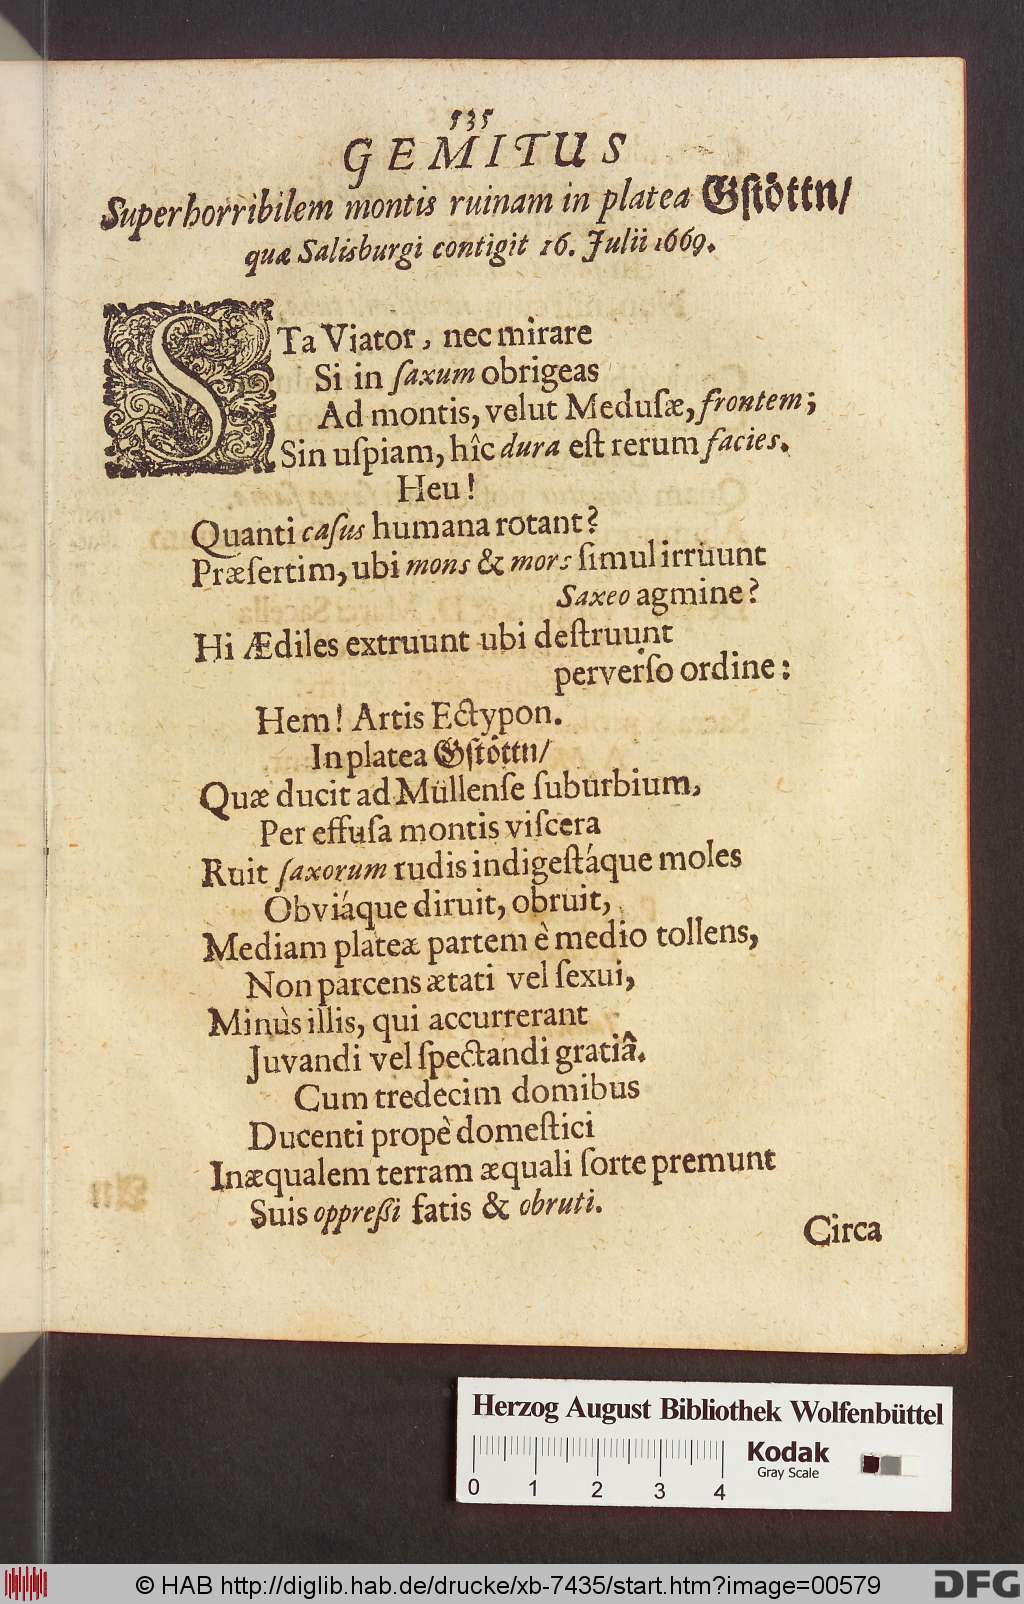 535
GEMITUS
Super horribilem montis ruinam in platea Gſtöttn/
quæ Salisburgi contigit 16. Julii 1669.
STa Viator, nec mirare
Si in ſaxum obrigeas
Ad montis, velut Meduſæ, frontem;
Sin uſpiam, hîc dura eſt rerum facies.
Heu!
Quanti caſus humana rotant?
Præſertim, ubi mons & mors ſimul irruunt
Saxeo agmine?
Hi Ædiles extruunt ubi deſtruunt
perverſo ordine:
Hem! Artis Ectypon.
In platea Gſtöttn/
Quæ ducit ad Müllenſe ſuburbium,
Per effuſa montis viſcera
Ruit ſaxorum rudis indigeſtáque moles
Obviáque diruit, obruit,
Mediam plateæ partem è medio tollens,
Non parcens ætati vel ſexui,
Minùs illis, qui accurrerant
Juvandi vel ſpectandi gratiâ.
Cum tredecim domibus
Ducenti propè domeſtici
Inæqualem terram æquali ſorte premunt
Suis oppreßi fatis & obruti.
Circa
Herzog August Bibliothek Wolfenbüttel
Kodak
Gray Scale
0 1 2 3 4
© HAB http://diglib.hab.de/drucke/xb-7435/start.htm?image=00579
DFG